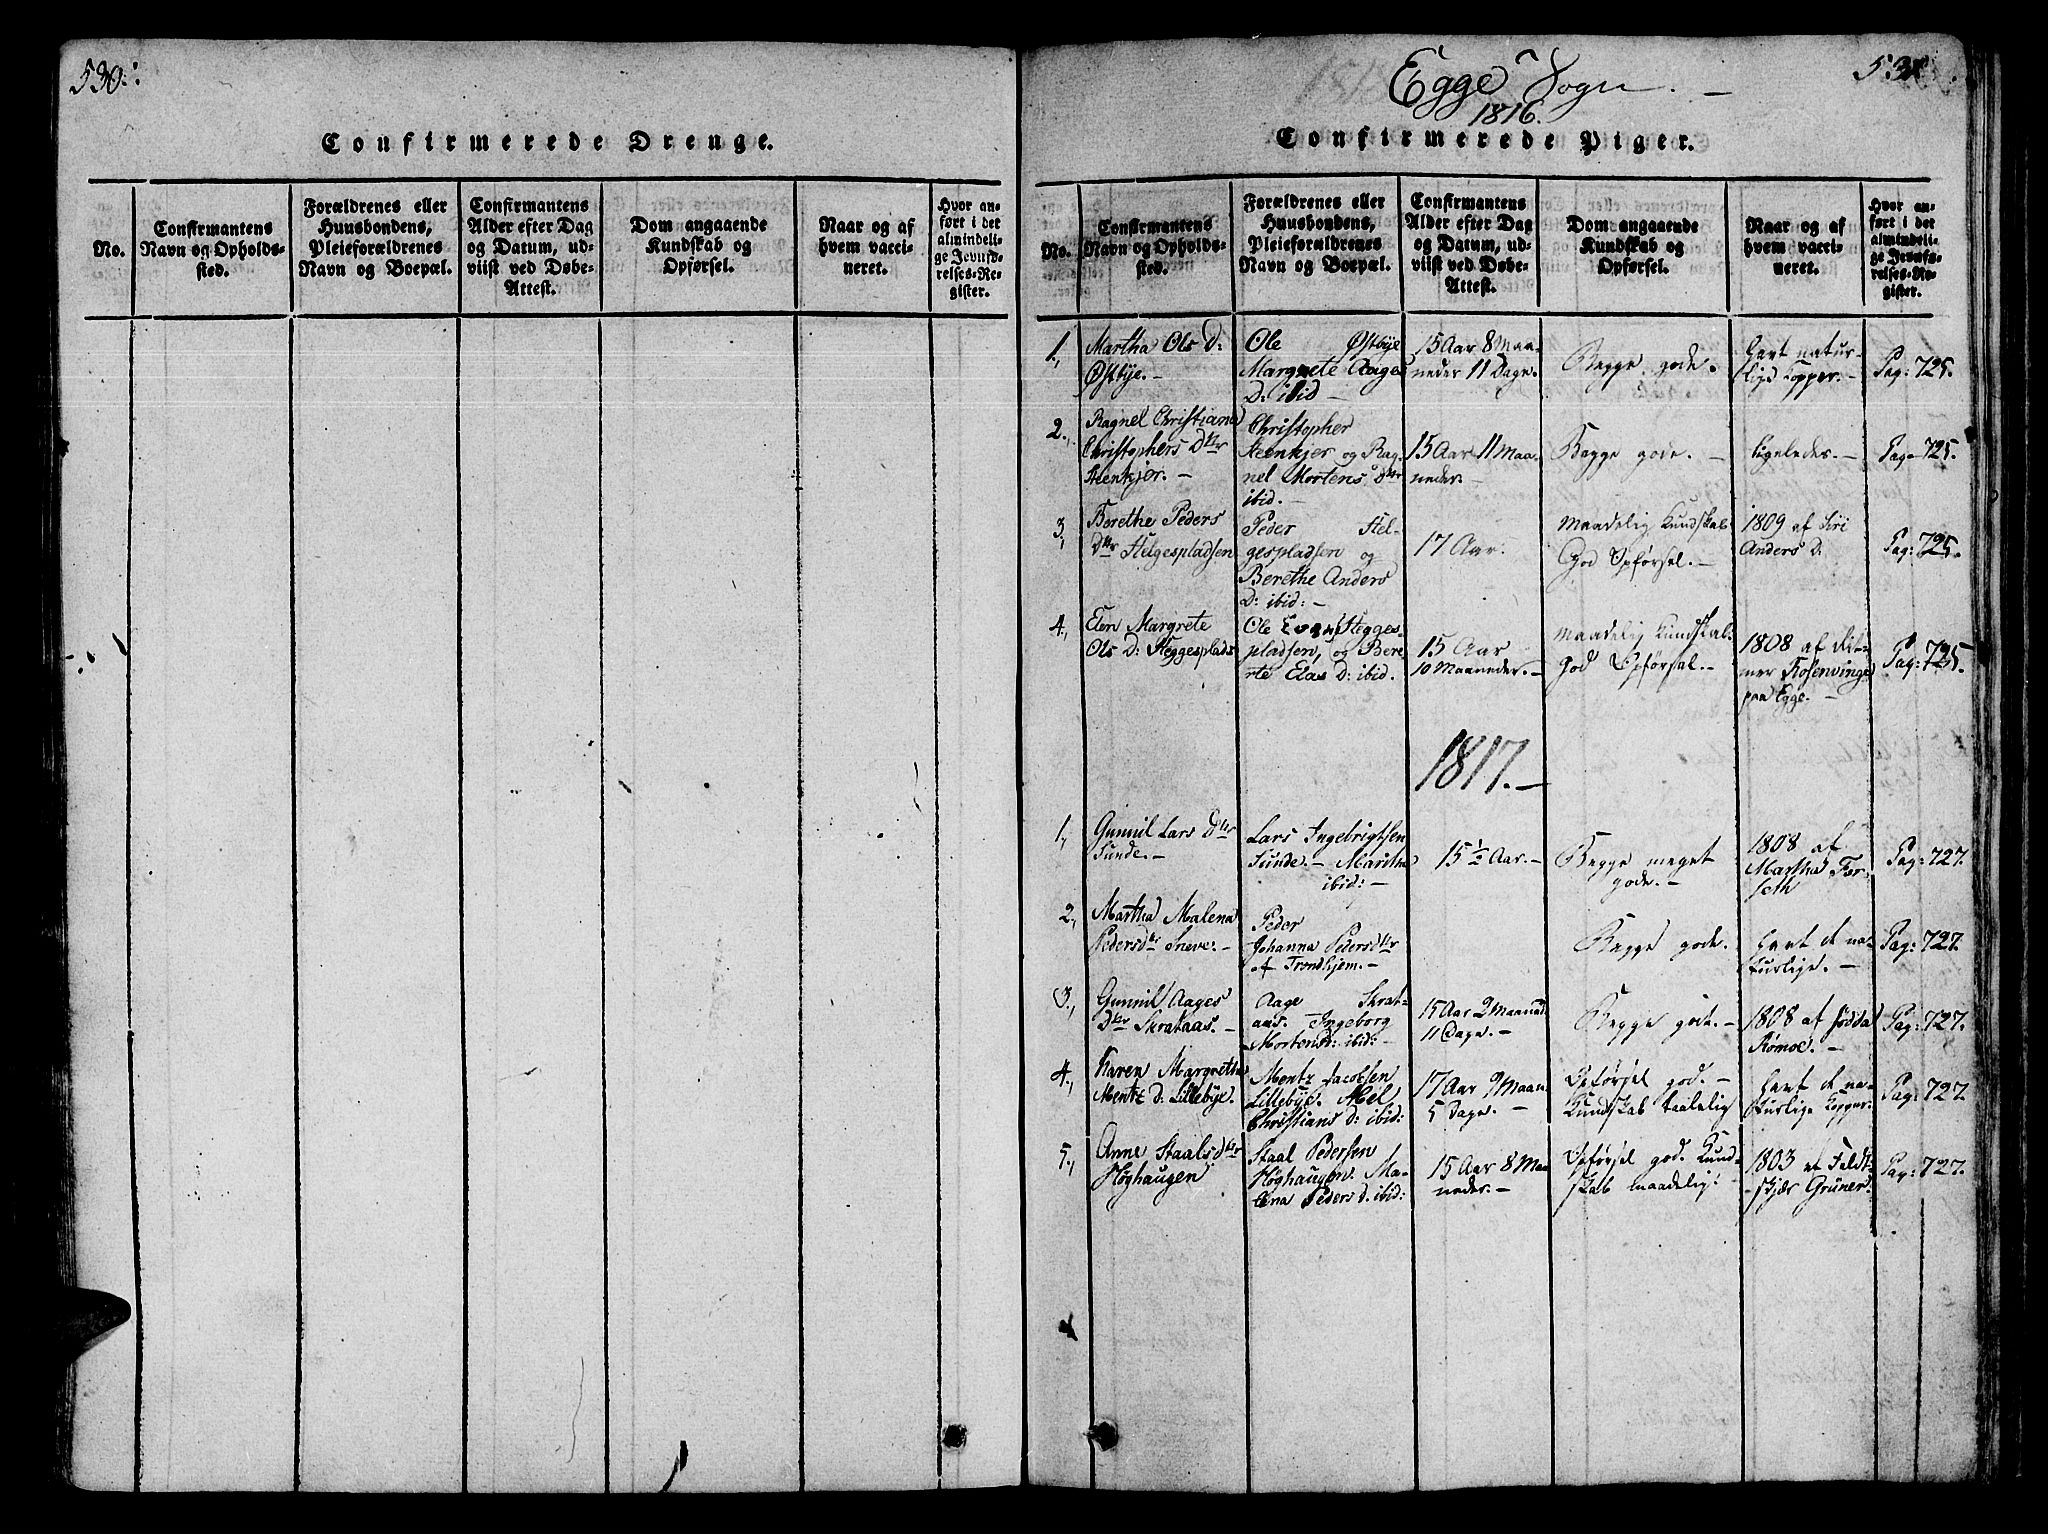 530.
Confirmerede Drenge.
No.
Confirmantens
Navn og Opholds-
sted.
Forældrenes eller
Huusbondens,
Pleieforældrenes
Navn og Boepæl.
Confirmantens
Alder efter Dag
og Datum, ud-
viist ved Døbe-
Attest.
Dom angaaende
Kundskab og
Opførsel.
Naar og af
hvem vacci-
neret.
Hvor an-
ført i det
almindeli-
ge Jevnfø-
relses-Re-
gister.
Egge Sogn. -
531.
1816.
Confirmerede Piger.
No.
Confirmantens
Navn og Opholds-
sted.
Forældrenes eller
Huusbondens,
Pleieforældrenes
Navn og Boepæl.
Confirmantens
Alder efter Dag
og Datum, ud-
viist ved Døbe-
Attest.
Dom angaaende
Kundskab og
Opførsel.
Naar og af
hvem vacci-
neret.
Hvor an-
ført i det
almindeli-
ge Jevnfø-
relses-Re-
gister.
1.,
Martha Ols D:
Østbye. -
Ole Østbye
Margrete Aages
D: ibid -
15 Aar 8 Maa-
neder 11 Dage.
Begge gode.
havt natur-
lige Kopper. -
Pag: 725.
2.,
Ragnel Christiana
Christophers Dtr
Steenkjer. -
Christopher
Steenkjer og Rag-
nel Mortens Dtr
ibid. -
15 Aar 11 Maa-
neder. -
Begge gode. -
ligeledes. -
Pag: 725.
3.,
Berethe Peders
Dtr Helgespladsen
Peder Hel-
gespladsen og
Berethe Anders
D: ibid: -
17 Aar.
Maadelig Kundskab
God Opførsel. -
1809 af Siri
Anders D.
Pag: 725.
4.,
Elen Margrete
Ols D: Heggesplads
Ole Evens Hegges-
pladsen, og Bere-
rte Elas D: ibid.
15 Aar
10 Maaneder. -
Maadelig Kundskab.
God Opførsel. -
1808 af Dit-
mer Rosenvinge
paa Egge. -
Pag: 725.
1817. -
1.,
Gunnil Lars Dtr
Sunde. -
Lars Ingebrigtsen
Sunde. - Maritha
ibid: -
15 1/2 Aar. -
Begge meget
gode. -
1808 af
Martha For-
seth
Pag: 727.
2.,
Martha Malena
Pedersdtr Sneve: -
Peder
Johanna Pedersdtr
af Trondhjem. -
Begge gode.
havt de na-
turlige. -
Pag: 727.
3.,
Gunnil Aages
Dtr Skrataas. -
Aage Skrat-
aas. - Ingeborg
Mortensd: ibid: -
15 Aar 2 Maaned.
11 Dage. -
Begge gode. -
1808 af
Rømoe. -
Pag: 727.
4.,
Karen Margretha
Mentz D: Lillebye.
Mentz Jacobsen
Lillebye. Abel
Christians D: ibid:
17 Aar 9 Maan.
5 Dage. -
Opførsel god. -
Kundskab taalelig
havt de na-
turlige Kopper.
Pag: 727
5.,
Anne Staalsdtr
Høghaugen
Staal Pedersen
Høghaugen. Ma-
lena Peders D. ibid:
15 Aar 8 Maa-
neder. -
Opførsel god. Kund-
skab maadelig:
1803 af Feldt-
skjær Grüner.
Pag: 727.